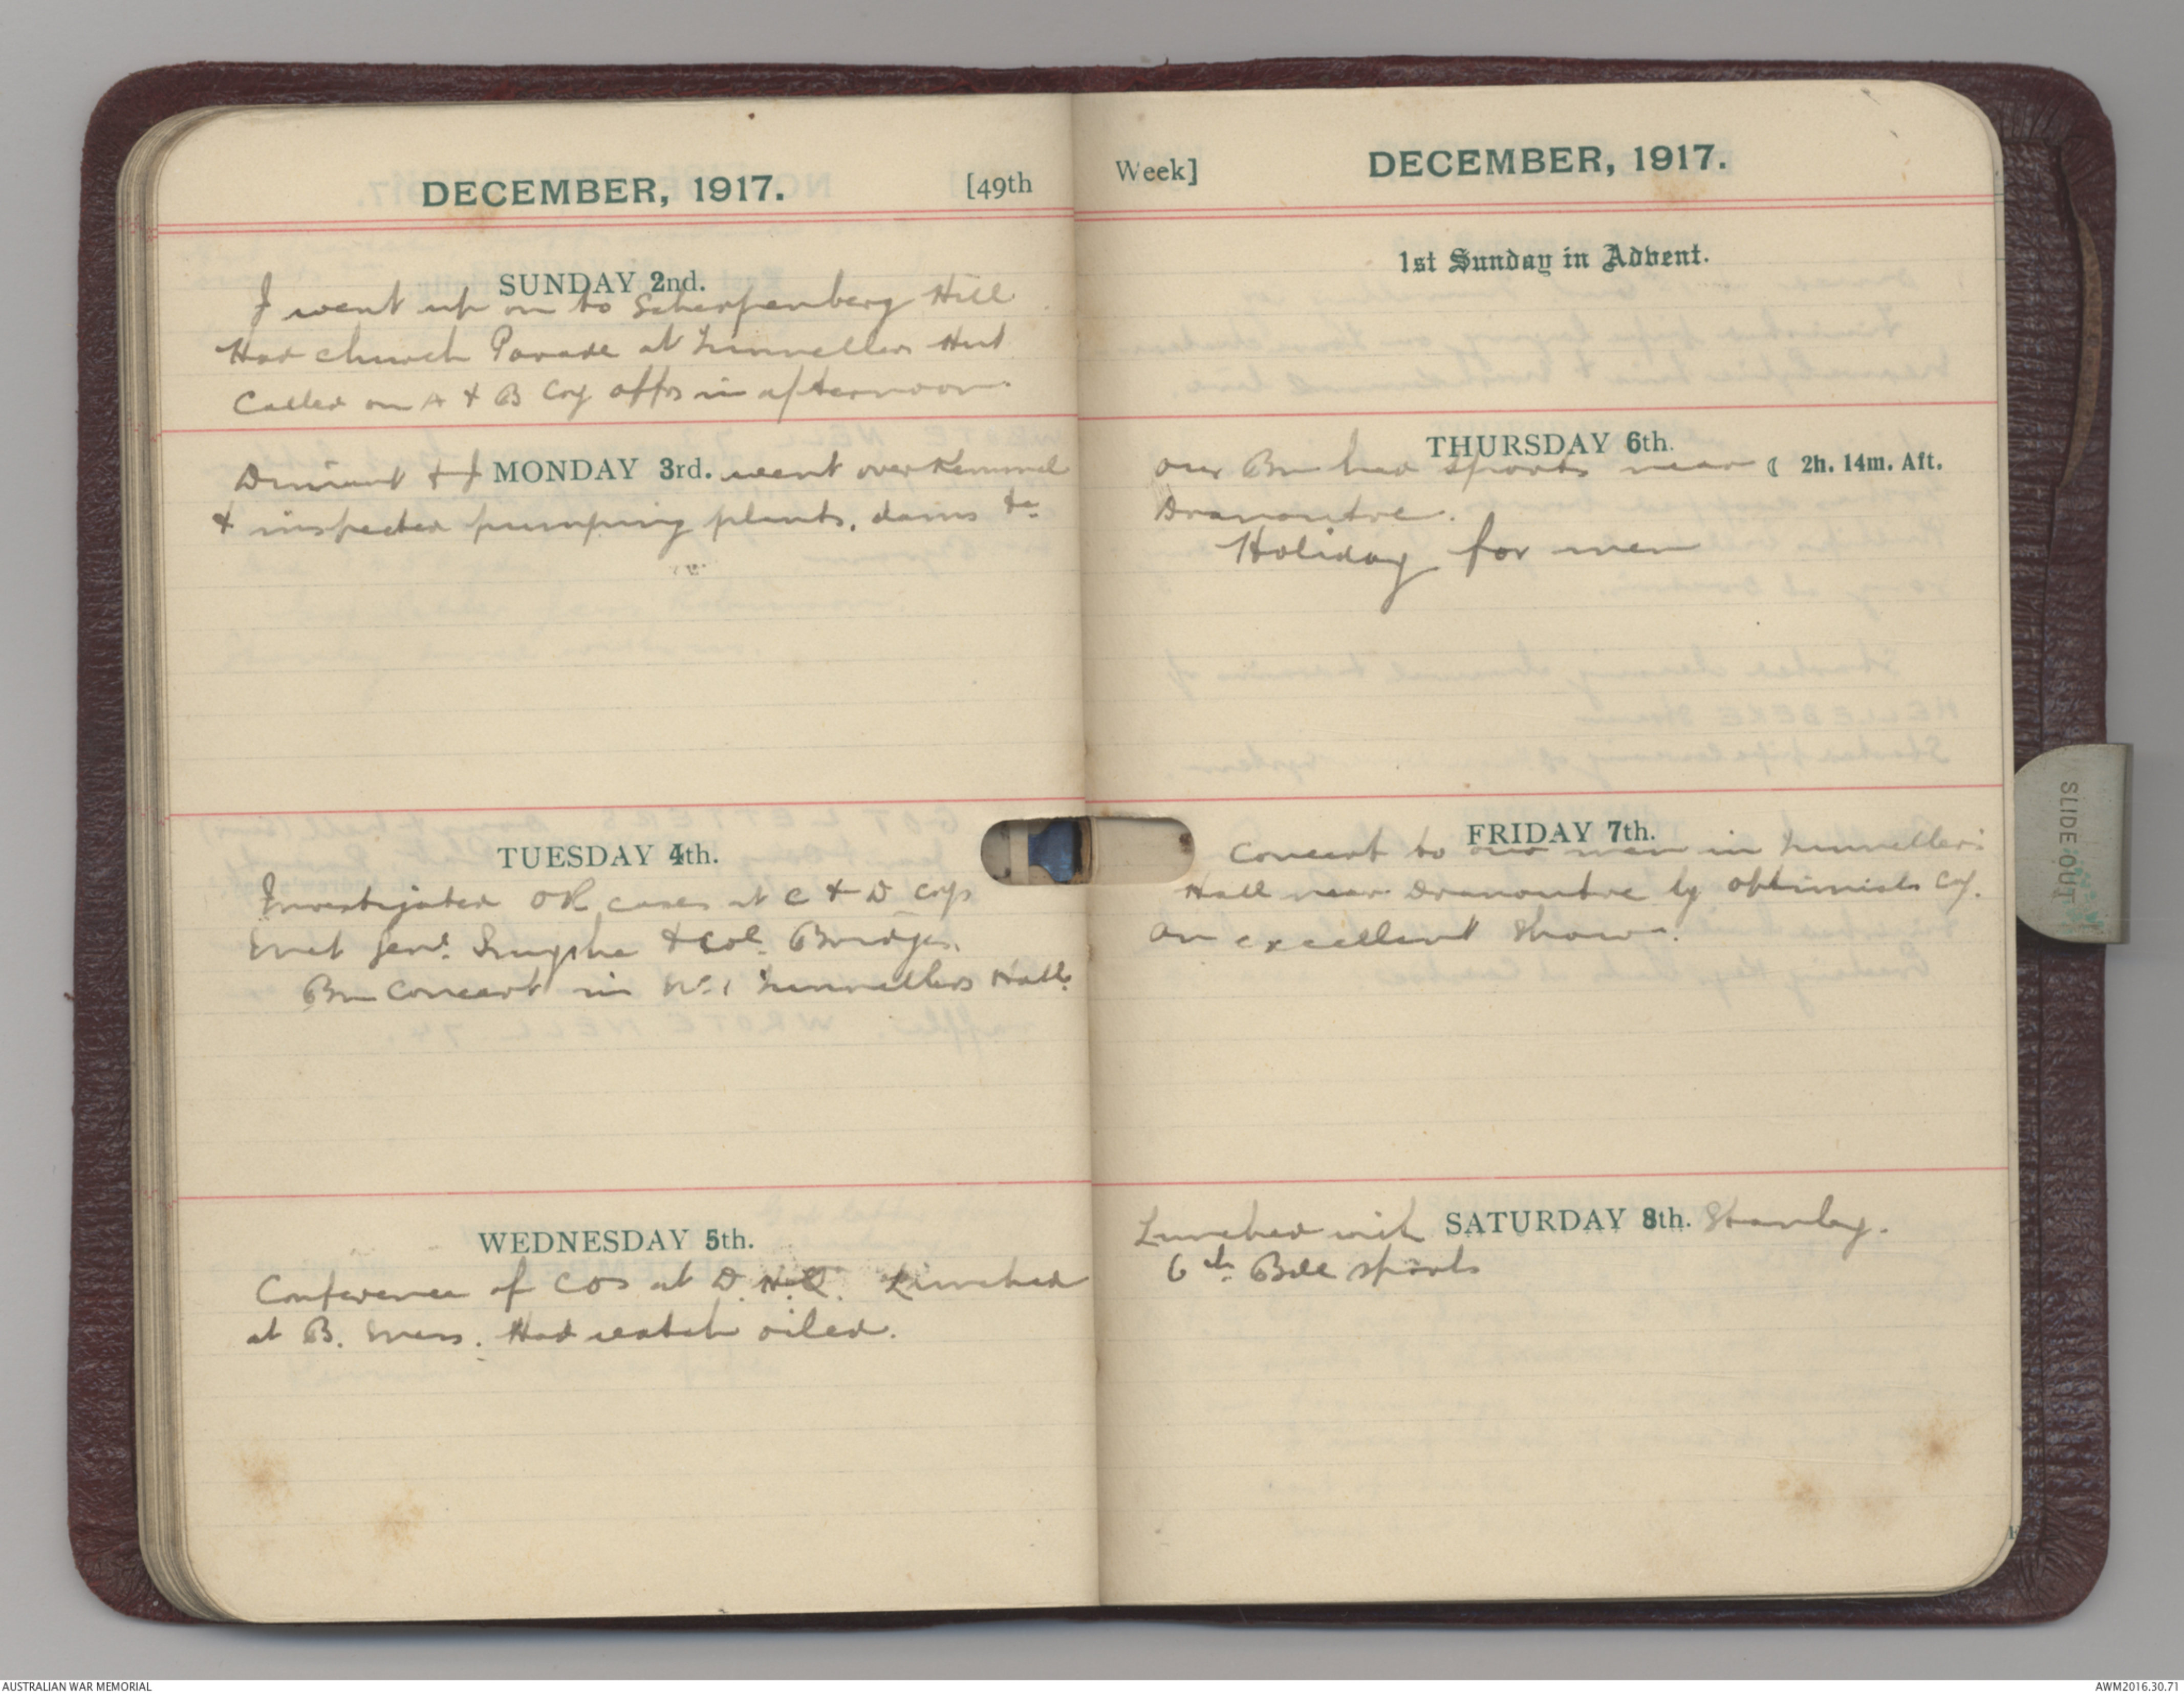 DECEMBER, 1917. [49th
SUNDAY 2nd.
I went up on to Scherpenberg Hill
Had church Parade at Tunnellers Hut
Called on A & B Coy offrs in afternoon.
MONDAY 3rd.
& I went over Kemmel
& inspected pumping plants, dams &c
TUESDAY 4th.
Investigated OR cases at C & D Coys
Met Genl. & Col. Bridges.
Bn Concert in No. 1 Tunnellers Hall.
WEDNESDAY 5th.
Conference of COs at D.H.Q. Lunched
at B. Mess. Had watch oiled.
Week] DECEMBER, 1917.
1st Sunday in Advent.
THURSDAY 6th.
Our Bn had sports near ☾ 2h. 14m. Aft.
Dranoutre.
Holiday for men
FRIDAY 7th.
Concert to our men in Tunnellers
Hall near Dranoutre by Optimists Coy.
An excellent show.
Lunched with SATURDAY 8th. Stanley.
6th Bde sports
SLIDE OUT
AUSTRALIAN WAR MEMORIAL
AWM2016.30.71